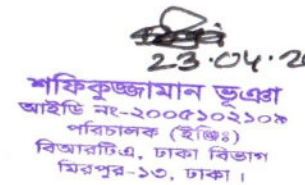 23.04.2
শফিকুজ্জামান ভূঞা
আইডি নং-২০০৫১০২১০৯
পরিচালক (ইঞ্জিঃ)
বিআরটিএ, ঢাকা বিভাগ
মিরপুর-১৩, ঢাকা।